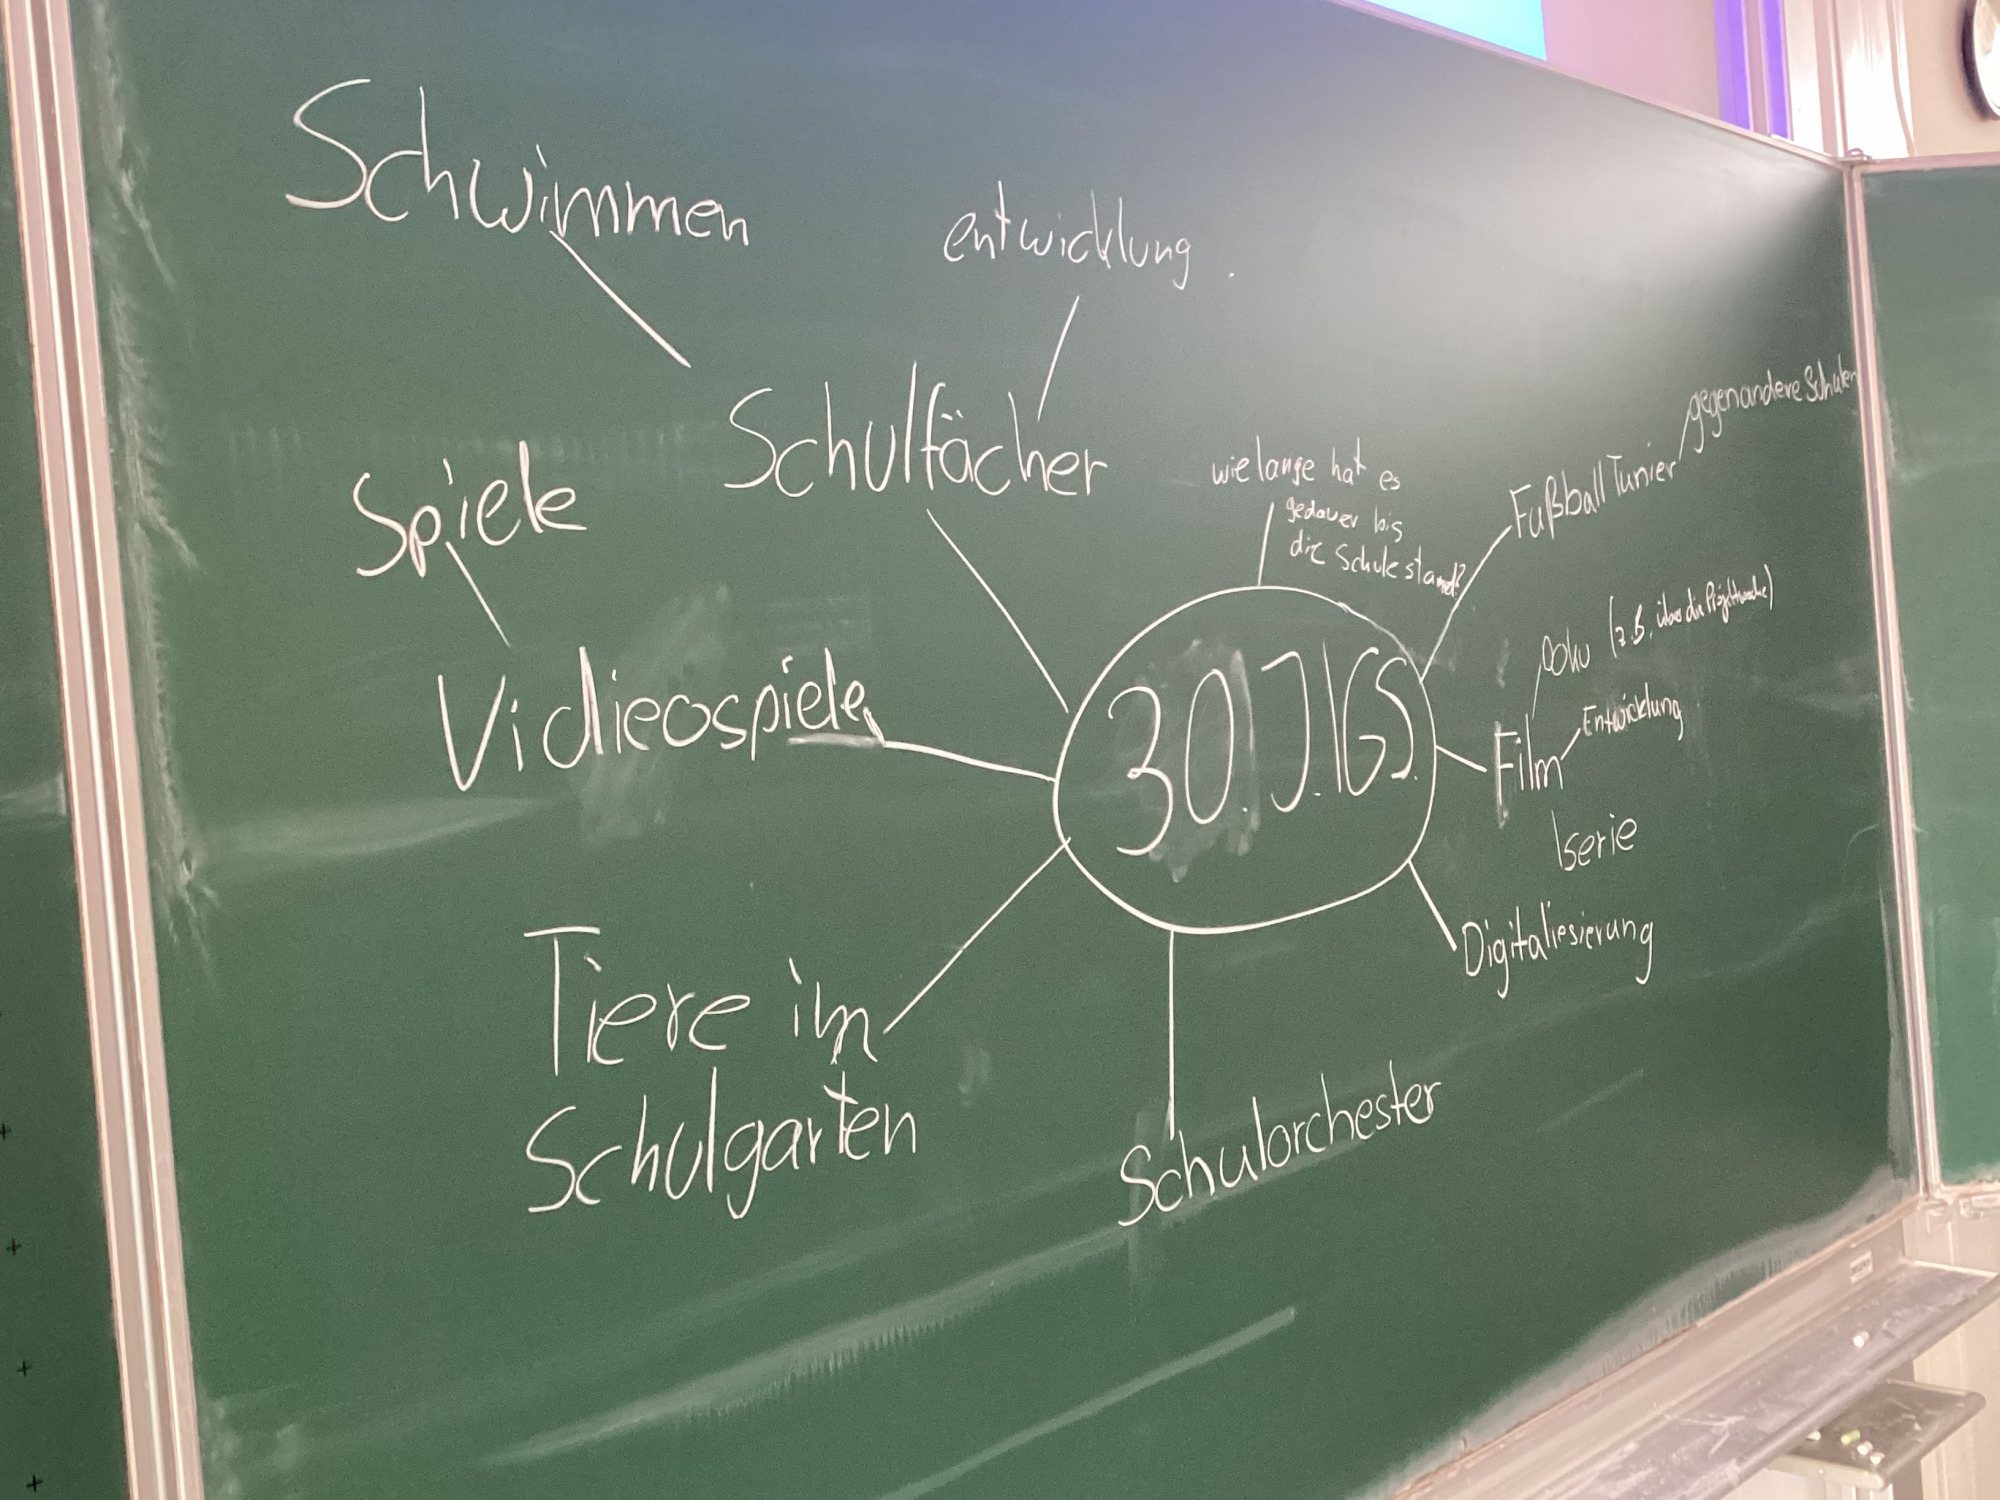 Schwimmen
entwicklung.
Schulfächer
gegen andere Schulen
Fußball Tunier
wie lange hat es
gedauer bis
die Schule stand?
Spiele
Vidieospiele
30.J.IGS.
Doku (z.B. über die Projektwoche)
Entwicklung
Film
serie
Digitaliesierung
Tiere im
Schulgarten
Schulorchester